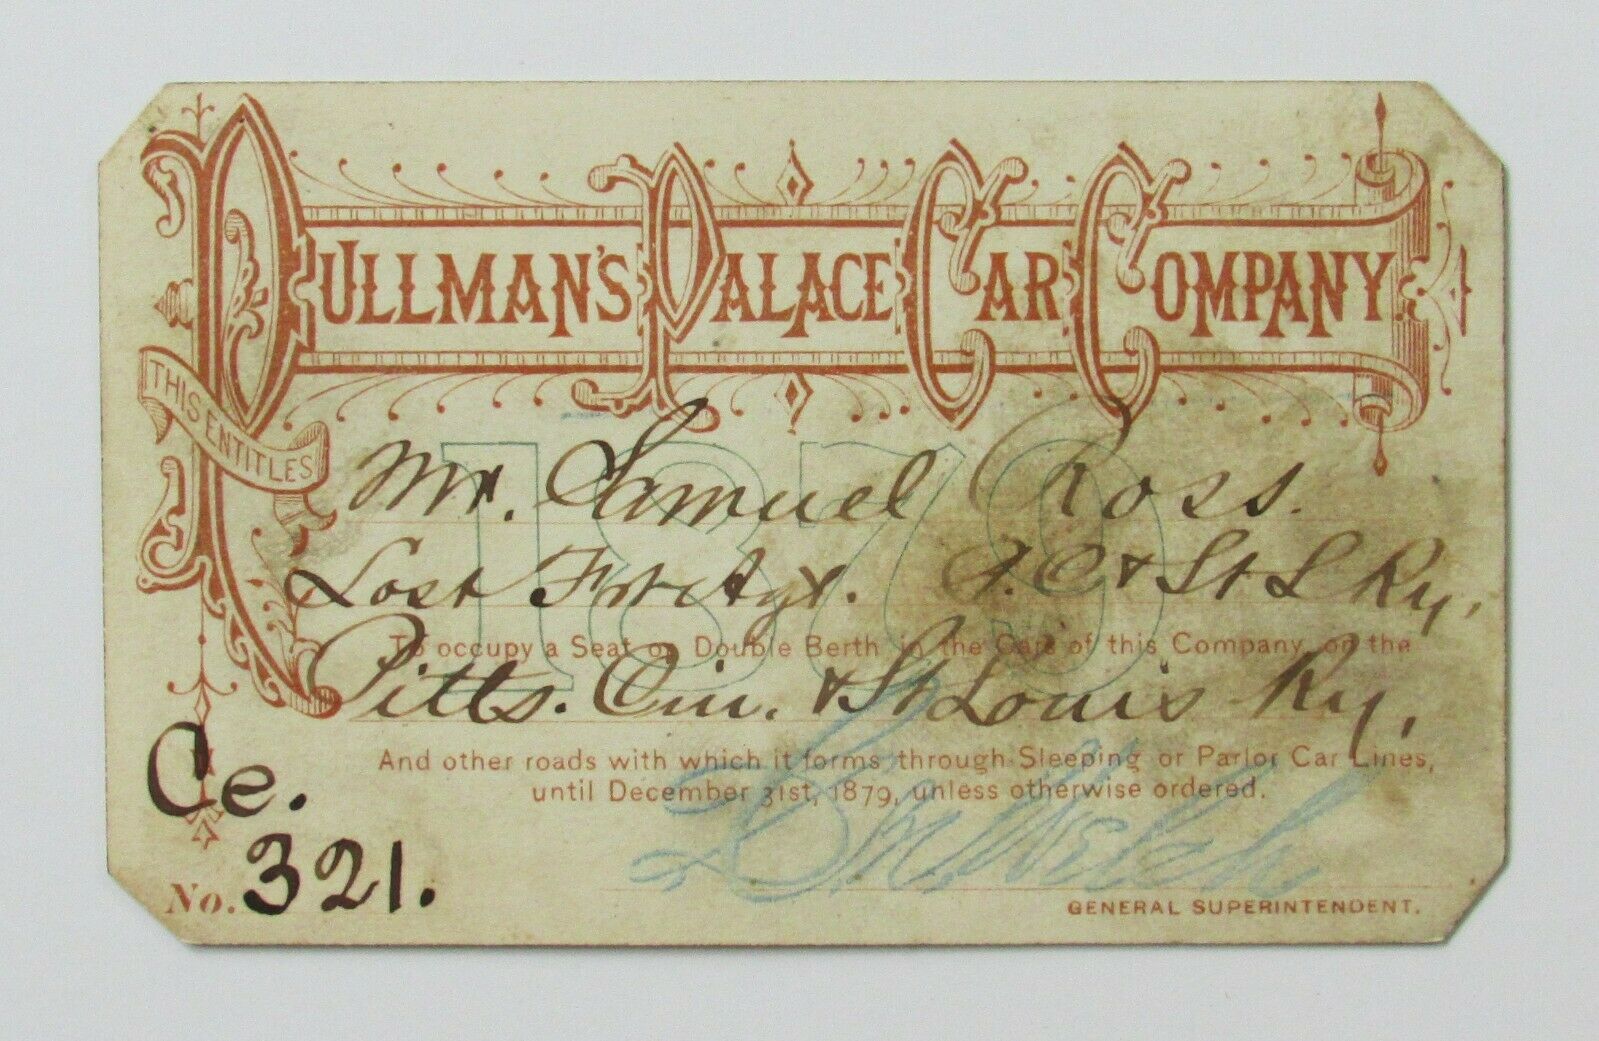 PULLMAN'S PALACE CAR COMPANY.
THIS ENTITLES
1879
Mr. Samuel Ross.
Lost Frt Agt. P. C & St L Ry,
To occupy a Seat or Double Berth in the Cars of this Company, on the
Pitts. Cin. & St Louis Ry,
And other roads with which it forms through Sleeping or Parlor Car Lines,
until December 31st, 1879, unless otherwise ordered.
Ce.
No. 321.
Welch
GENERAL SUPERINTENDENT.